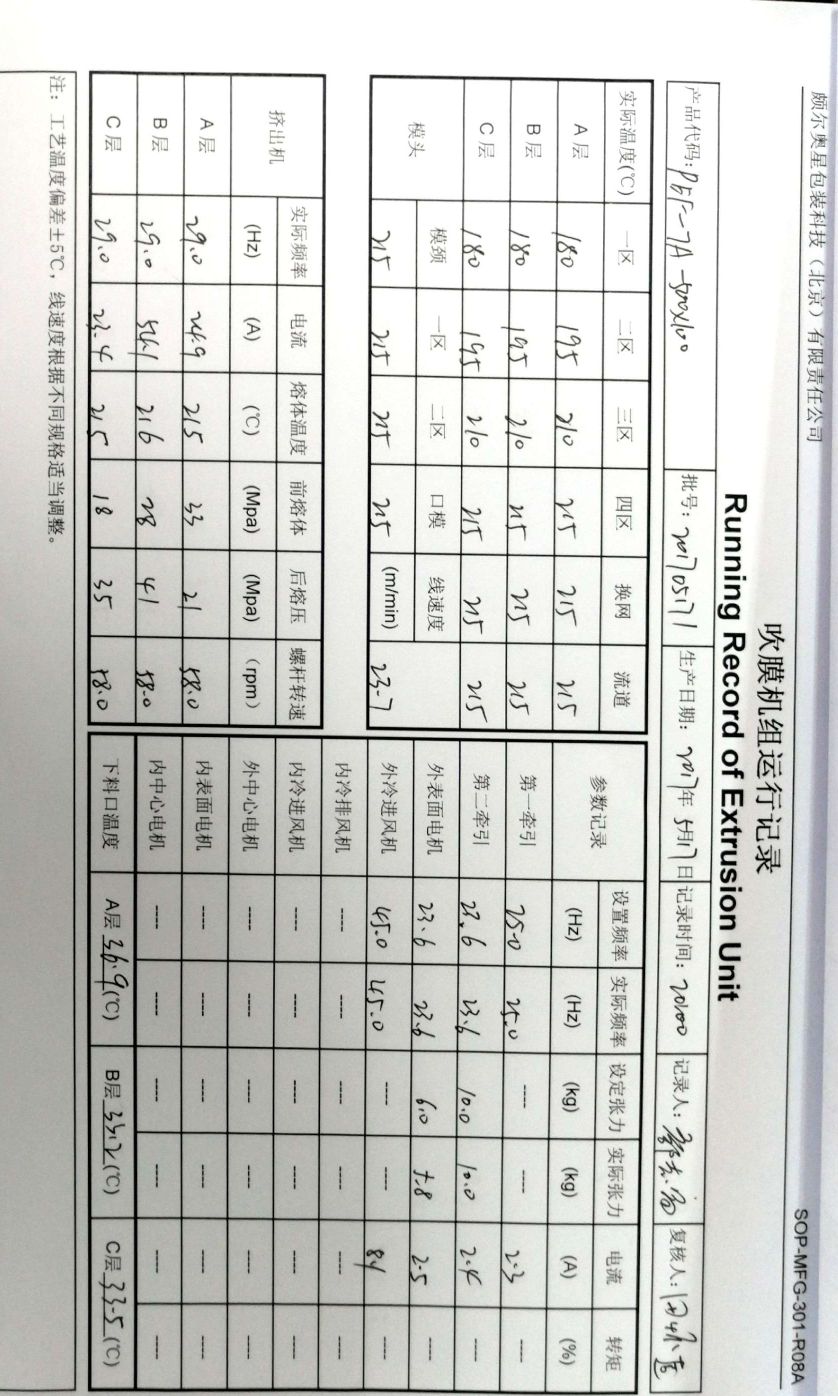 颇尔奥星包装科技（北京）有限责任公司
SOP-MFG-301-R08A
吹膜机组运行记录
Running Record of Extrusion Unit
产品代码: PEF-7A-500x100 批号: 201705171 生产日期: 2017年 5月17日 记录时间: 20:00 记录人: 复核人:
实际温度(℃) 一区 二区 三区 四区 换网 流道
A 层 180 195 210 215 215 215
B 层 180 195 210 215 215 215
C 层 180 195 210 215 215 215
模头 模颈 一区 二区 口模 线速度
(m/min)
215 215 215 215 23.7
挤出机 实际频率 电流 熔体温度 前熔体 后熔压 螺杆转速
(Hz) (A) (℃) (Mpa) (Mpa) （rpm）
A 层 29.0 24.9 215 33 21 58.0
B 层 29.0 54.1 216 28 41 58.0
C 层 29.0 23.4 215 18 35 58.0
参数记录 设置频率 实际频率 设定张力 实际张力 电流 转矩
(Hz) (Hz) (kg) (kg) (A) (%)
第一牵引 25.0 25.0 ---- ---- 2.3 ----
第二牵引 23.6 23.6 10.0 10.0 2.4 ----
外表面电机 23.6 23.6 6.0 5.8 2.5 ----
外冷进风机 45.0 45.0 ---- ---- ----
内冷排风机 ---- ---- ---- ---- ---- ----
内冷进风机 ---- ---- ---- ---- ---- ----
外中心电机 ---- ---- ---- ---- ---- ----
内表面电机 ---- ---- ---- ---- ---- ----
内中心电机 ---- ---- ---- ---- ---- ----
下料口温度 A层 36.9 (℃) B层 (℃) C层 33.5 (℃)
注: 工艺温度偏差±5℃，线速度根据不同规格适当调整。